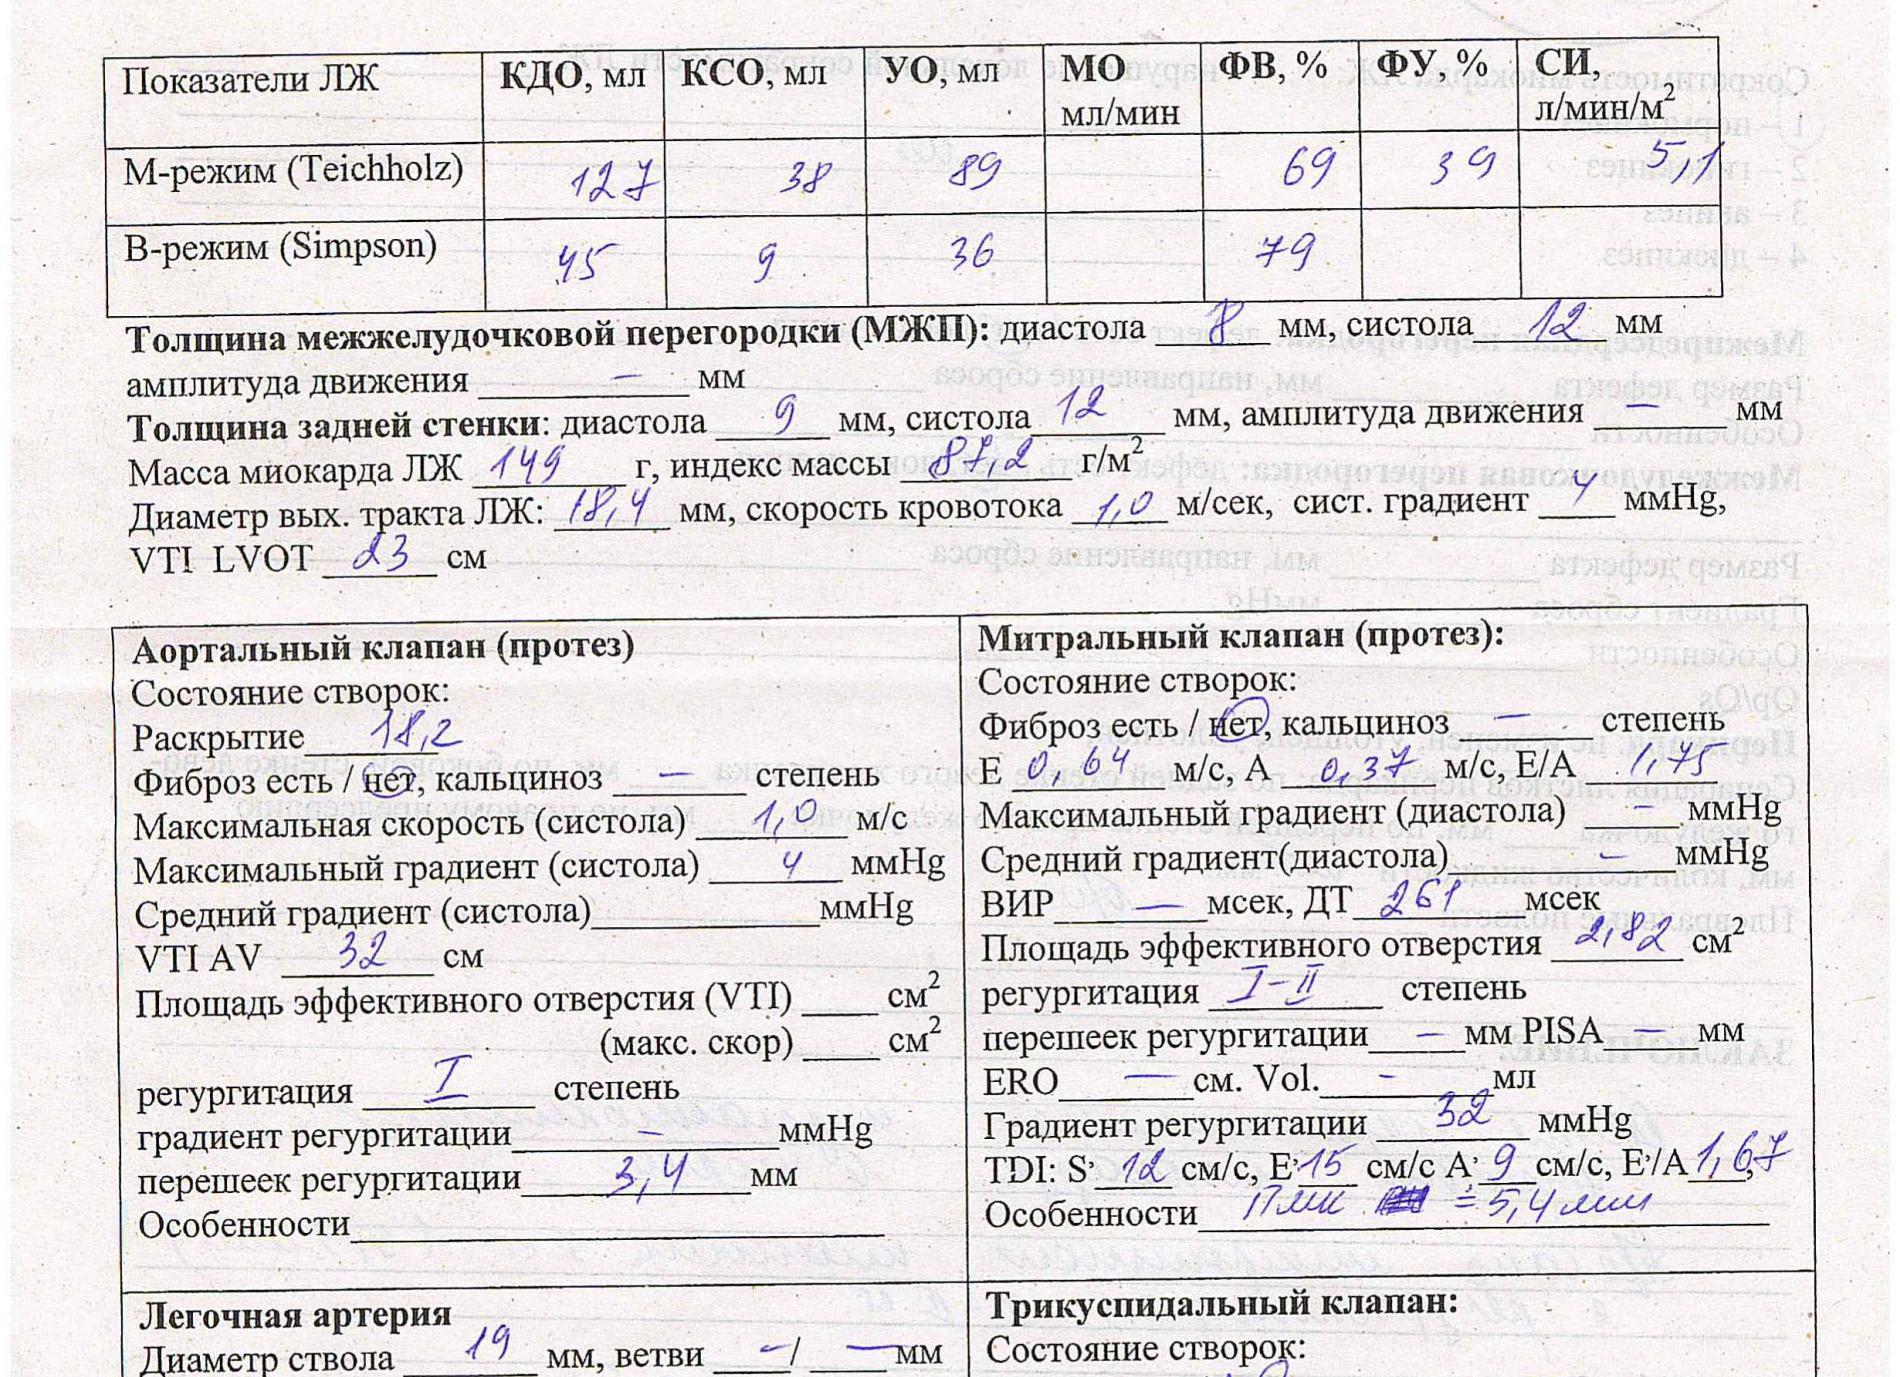 Показатели ЛЖ КДО, мл КСО, мл УО, мл МО ФВ, % ФУ, % СИ,
мл/мин л/мин/м²
М-режим (Teichholz) 127 38 89 69 39 5,1
В-режим (Simpson) 45 9 36 79
Толщина межжелудочковой перегородки (МЖП): диастола 8 мм, систола 12 мм
амплитуда движения – мм
Толщина задней стенки: диастола 9 мм, систола 12 мм, амплитуда движения – мм
Масса миокарда ЛЖ 149 г, индекс массы 87,2 г/м²
Диаметр вых. тракта ЛЖ: 18,4 мм, скорость кровотока 1,0 м/сек, сист. градиент 4 ммHg,
VTI LVOT 23 см
Аортальный клапан (протез)
Состояние створок:
Раскрытие 18,2
Фиброз есть / нет, кальциноз – степень
Максимальная скорость (систола) 1,0 м/с
Максимальный градиент (систола) 4 ммHg
Средний градиент (систола) ммHg
VTI AV 32 см
Площадь эффективного отверстия (VTI) см²
(макс. скор) см²
регургитация I степень
градиент регургитации – ммHg
перешеек регургитации 3,4 мм
Особенности
Митральный клапан (протез):
Состояние створок:
Фиброз есть / нет, кальциноз – степень
Е 0,64 м/с, А 0,37 м/с, Е/А 1,75
Максимальный градиент (диастола) – ммHg
Средний градиент(диастола) – ммHg
ВИР – мсек, ДТ 261 мсек
Площадь эффективного отверстия 2,82 см²
регургитация I-II степень
перешеек регургитации – мм PISA – мм
ERO – см. Vol. - мл
Градиент регургитации 32 ммHg
TDI: S' 12 см/с, E' 15 см/с A' 9 см/с, E'/A 1,67
Особенности ПМК = 5,4 мм
Легочная артерия
Диаметр ствола 19 мм, ветви – / – мм
Трикуспидальный клапан:
Состояние створок: